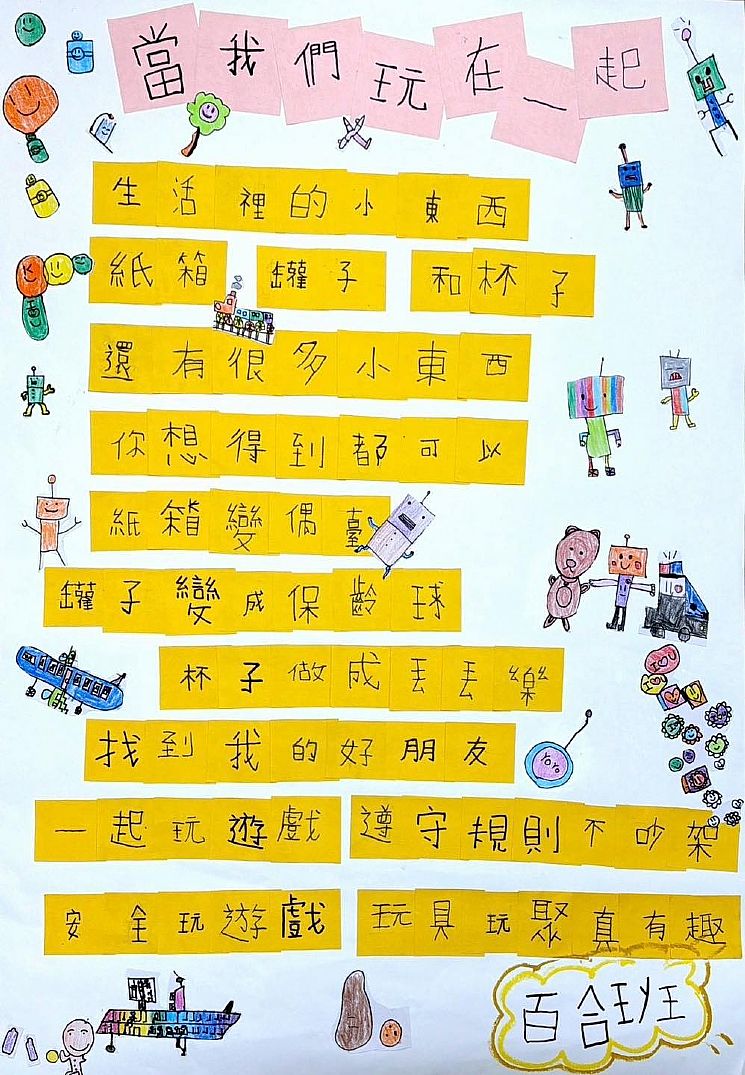 當我們玩在一起
生活裡的小東西
紙箱 罐子 和杯子
還有很多小東西
你想得到都可以
紙箱變偶臺
罐子變成保齡球
杯子做成丟丟樂
找到我的好朋友
一起玩遊戲 遵守規則不吵架
安全玩遊戲 玩具玩聚真有趣
百合班